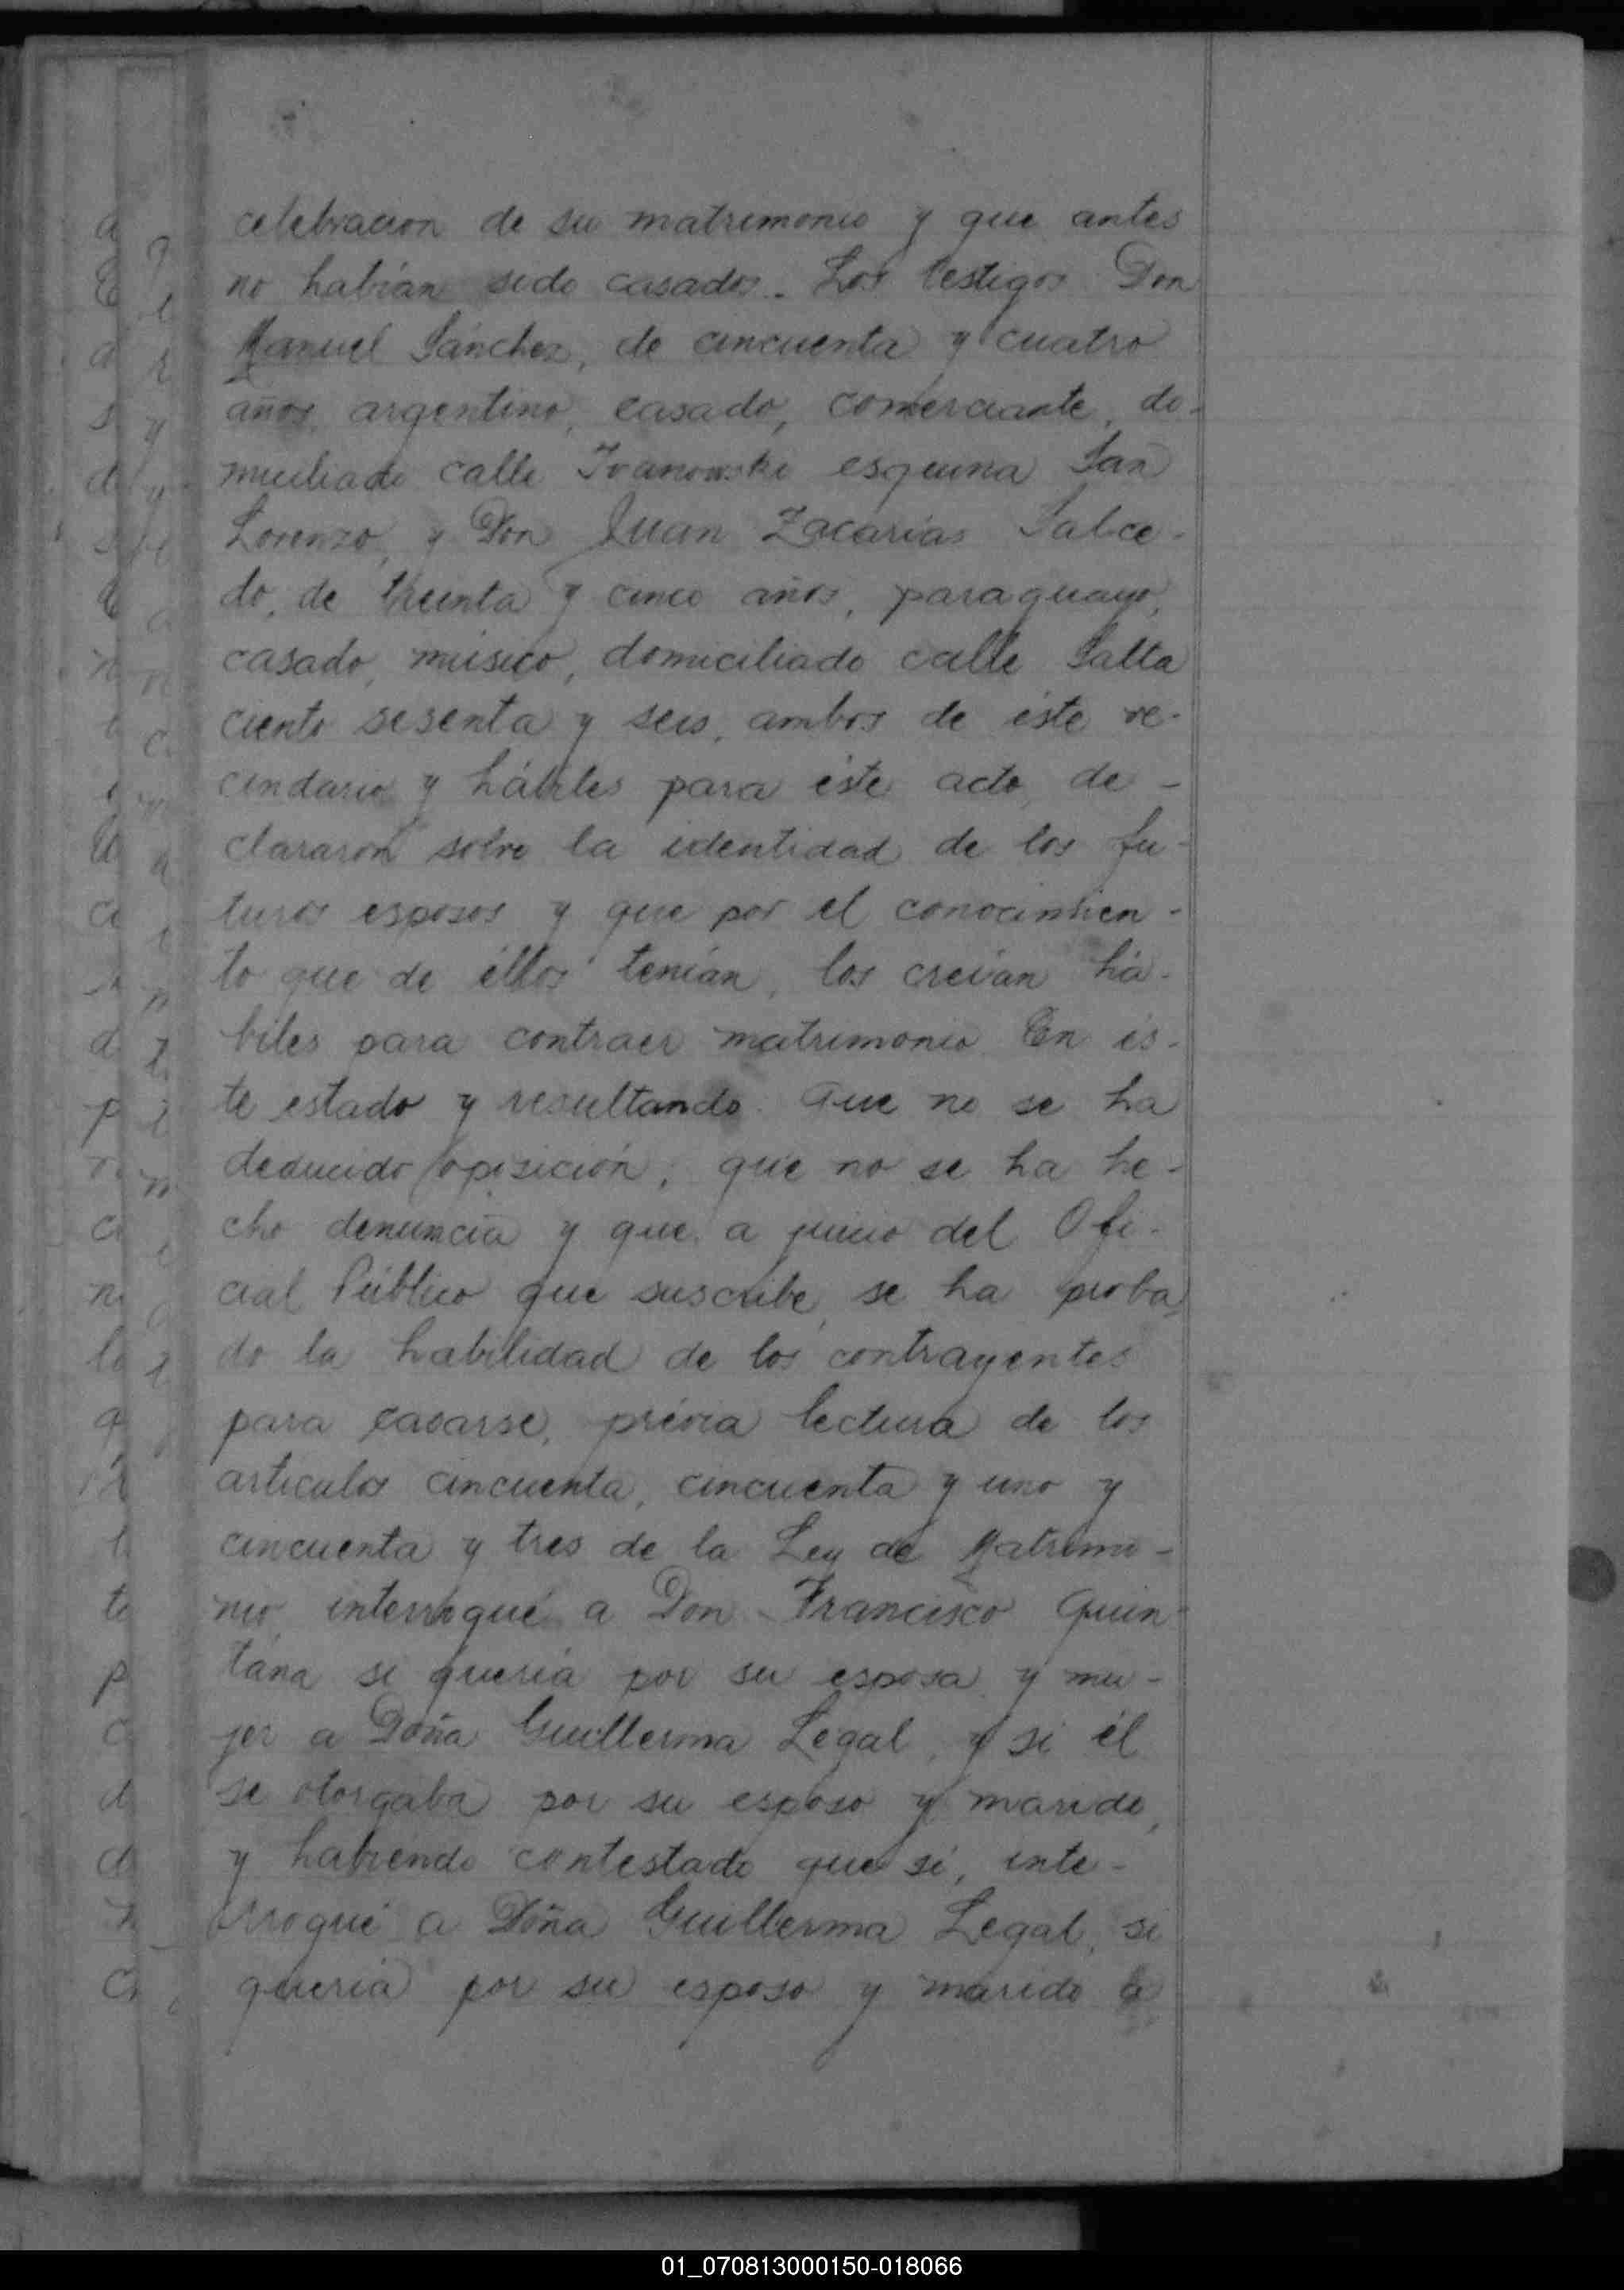 celebracion de su matrimonio y que antes
no habían sido casados. Los testigos Don
Manuel Sánchez, de cincuenta y cuatro
años, argentino, casado, comerciante, do-
miciliado calle Ivanowski esquina San
Lorenzo, y Don Juan Zacarías Salce-
do, de treinta y cinco años, paraguayo,
casado, músico, domiciliado calle Salta
ciento sesenta y seis, ambos de éste ve-
cindario y hábiles para éste acto, de-
clararon sobre la identidad de los fu-
turos esposos y que por el conocimien-
to que de éllos tenían, los creían há-
biles para contraer matrimonio. En és-
te estado y resultando: Que no se ha
deducido oposición, que no se ha he-
cho denuncia y que, a juicio del Ofi-
cial Público que suscribe, se ha proba-
do la habilidad de los contrayentes
para casarse, prévia lectura de los
articulos cincuenta, cincuenta y uno y
cincuenta y tres de la Ley de Matrimo-
nio, interrogué a Don Francisco Quin-
tána si quería por su esposa y mu-
jer a Doña Guillerma Legal, y si él
se otorgaba por su esposo y marido,
y habiendo contestado que sí, inte-
rrogué a Doña Guillerma Legal, si
quería por su esposo y marido a
01_070813000150-018066